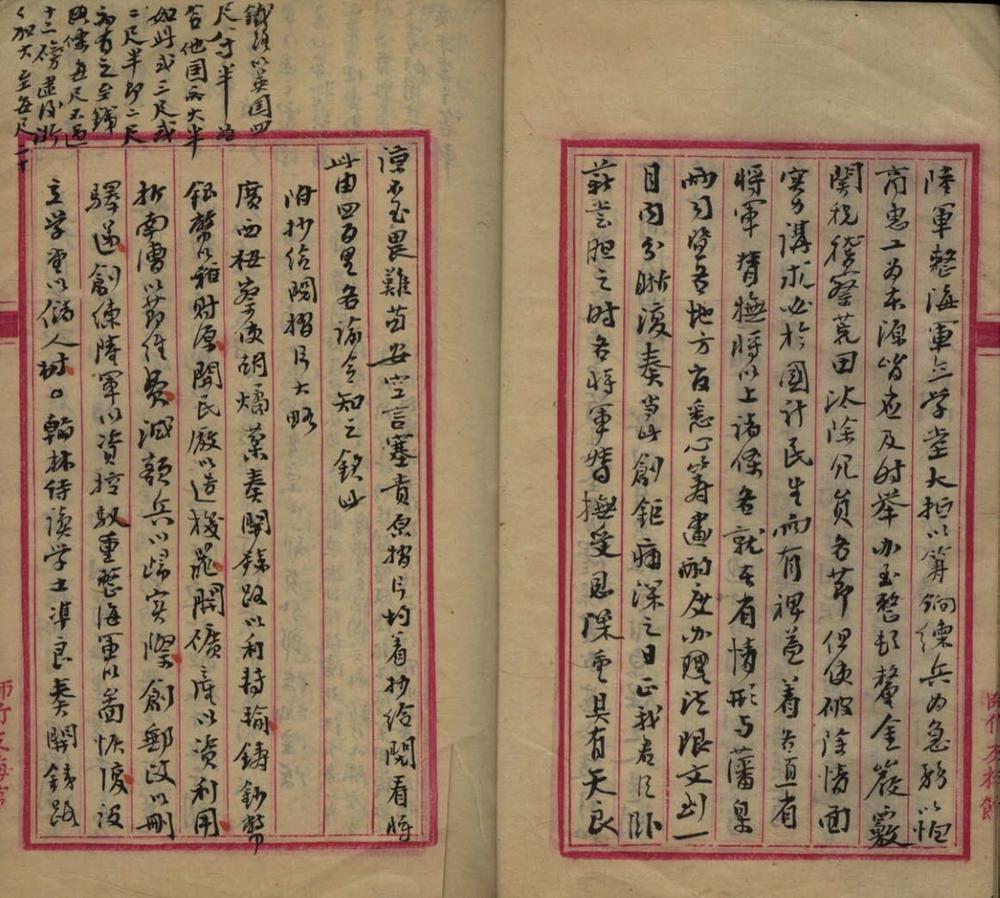 陸軍整海軍立学堂大抵以籌餉練兵为急務以恤
商惠工为本源皆应及时举办至整頓釐金嚴覈
関税稽察荒田汰除冗員各節但使破除情面
实力講求必於國计民生兩有裨益着各直省
将軍督撫将以上諸條各就本省情形与藩臬
兩司暨各地方官悉心筹畫酌度办理限文到一
月内分晰復奏当此創鉅痛深之日正我君臣卧
薪尝胆之时各将軍督撫受恩深重具有天良
諒不至畏難苟安空言塞責原摺片均着抄给閱看将
此由四百里各諭令知之欽此
附抄给閱摺片大略
廣西按察使胡燏棻奏開鉄路以利转输鑄鈔幣
銀幣以裕財源開民廠以造機器開礦產以资利用
折南漕以節經費減額兵以歸实際創郵政以刪
驛遞創練陸軍以資控馭重整海軍以啚恢復设
立学堂以储人材口翰林侍讀学士準良奏開鉄路
鐵路以英国四
尺寸半为
合他国或大半
如此或三尺或
二尺半即二尺
亦有之至鐵
每尺不过
十二磅逮後漸
加大至每尺二十